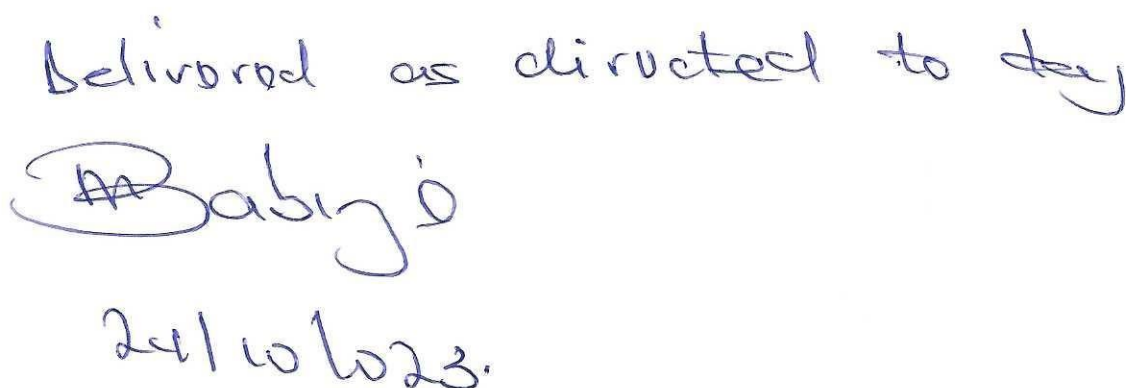 Delivered as directed to day
Babigo
24/10/023.